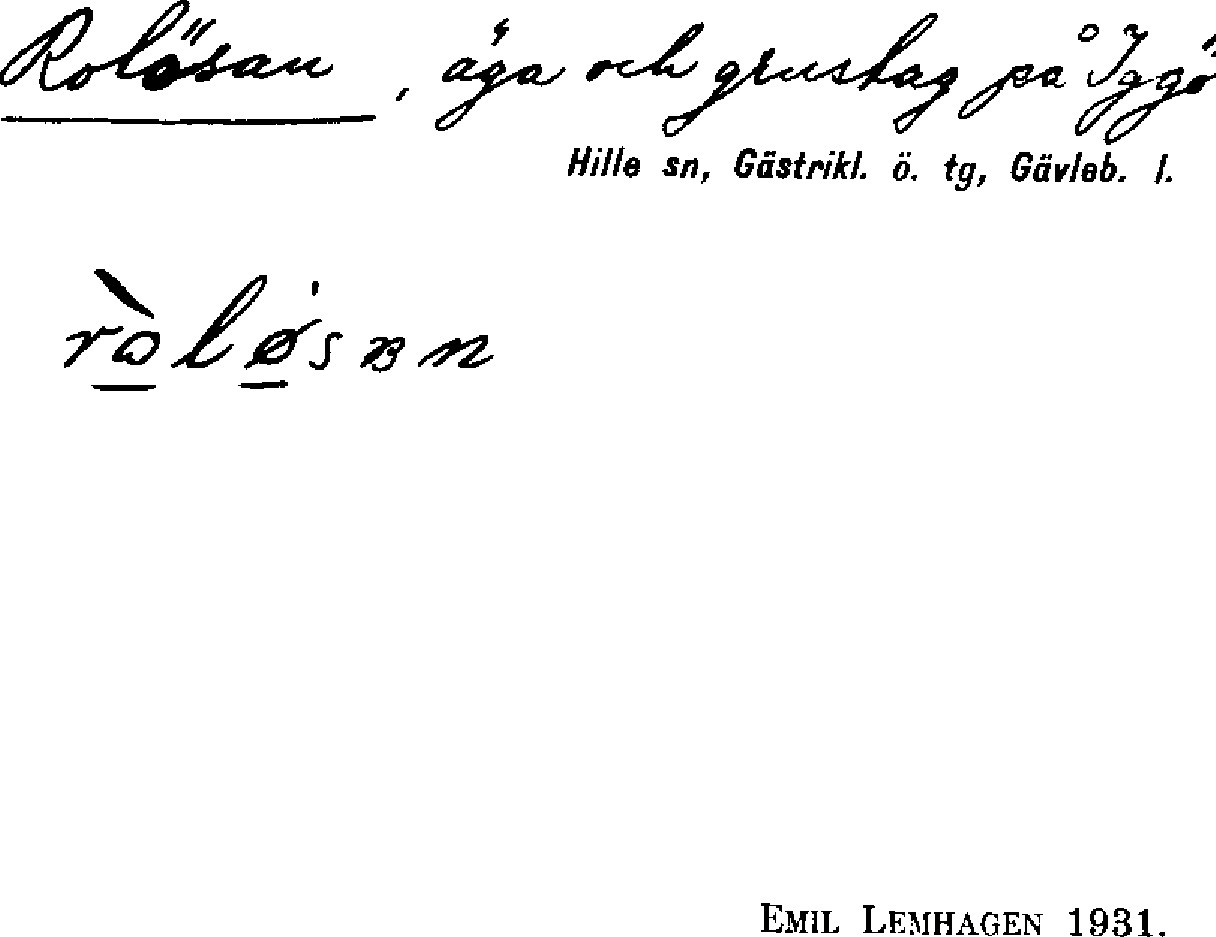 Rolösan, äga och grustag på Iggö
Hille sn, Gästrikl. ö. tg, Gävleb. l.
EMIL LEMHAGEN 1931.